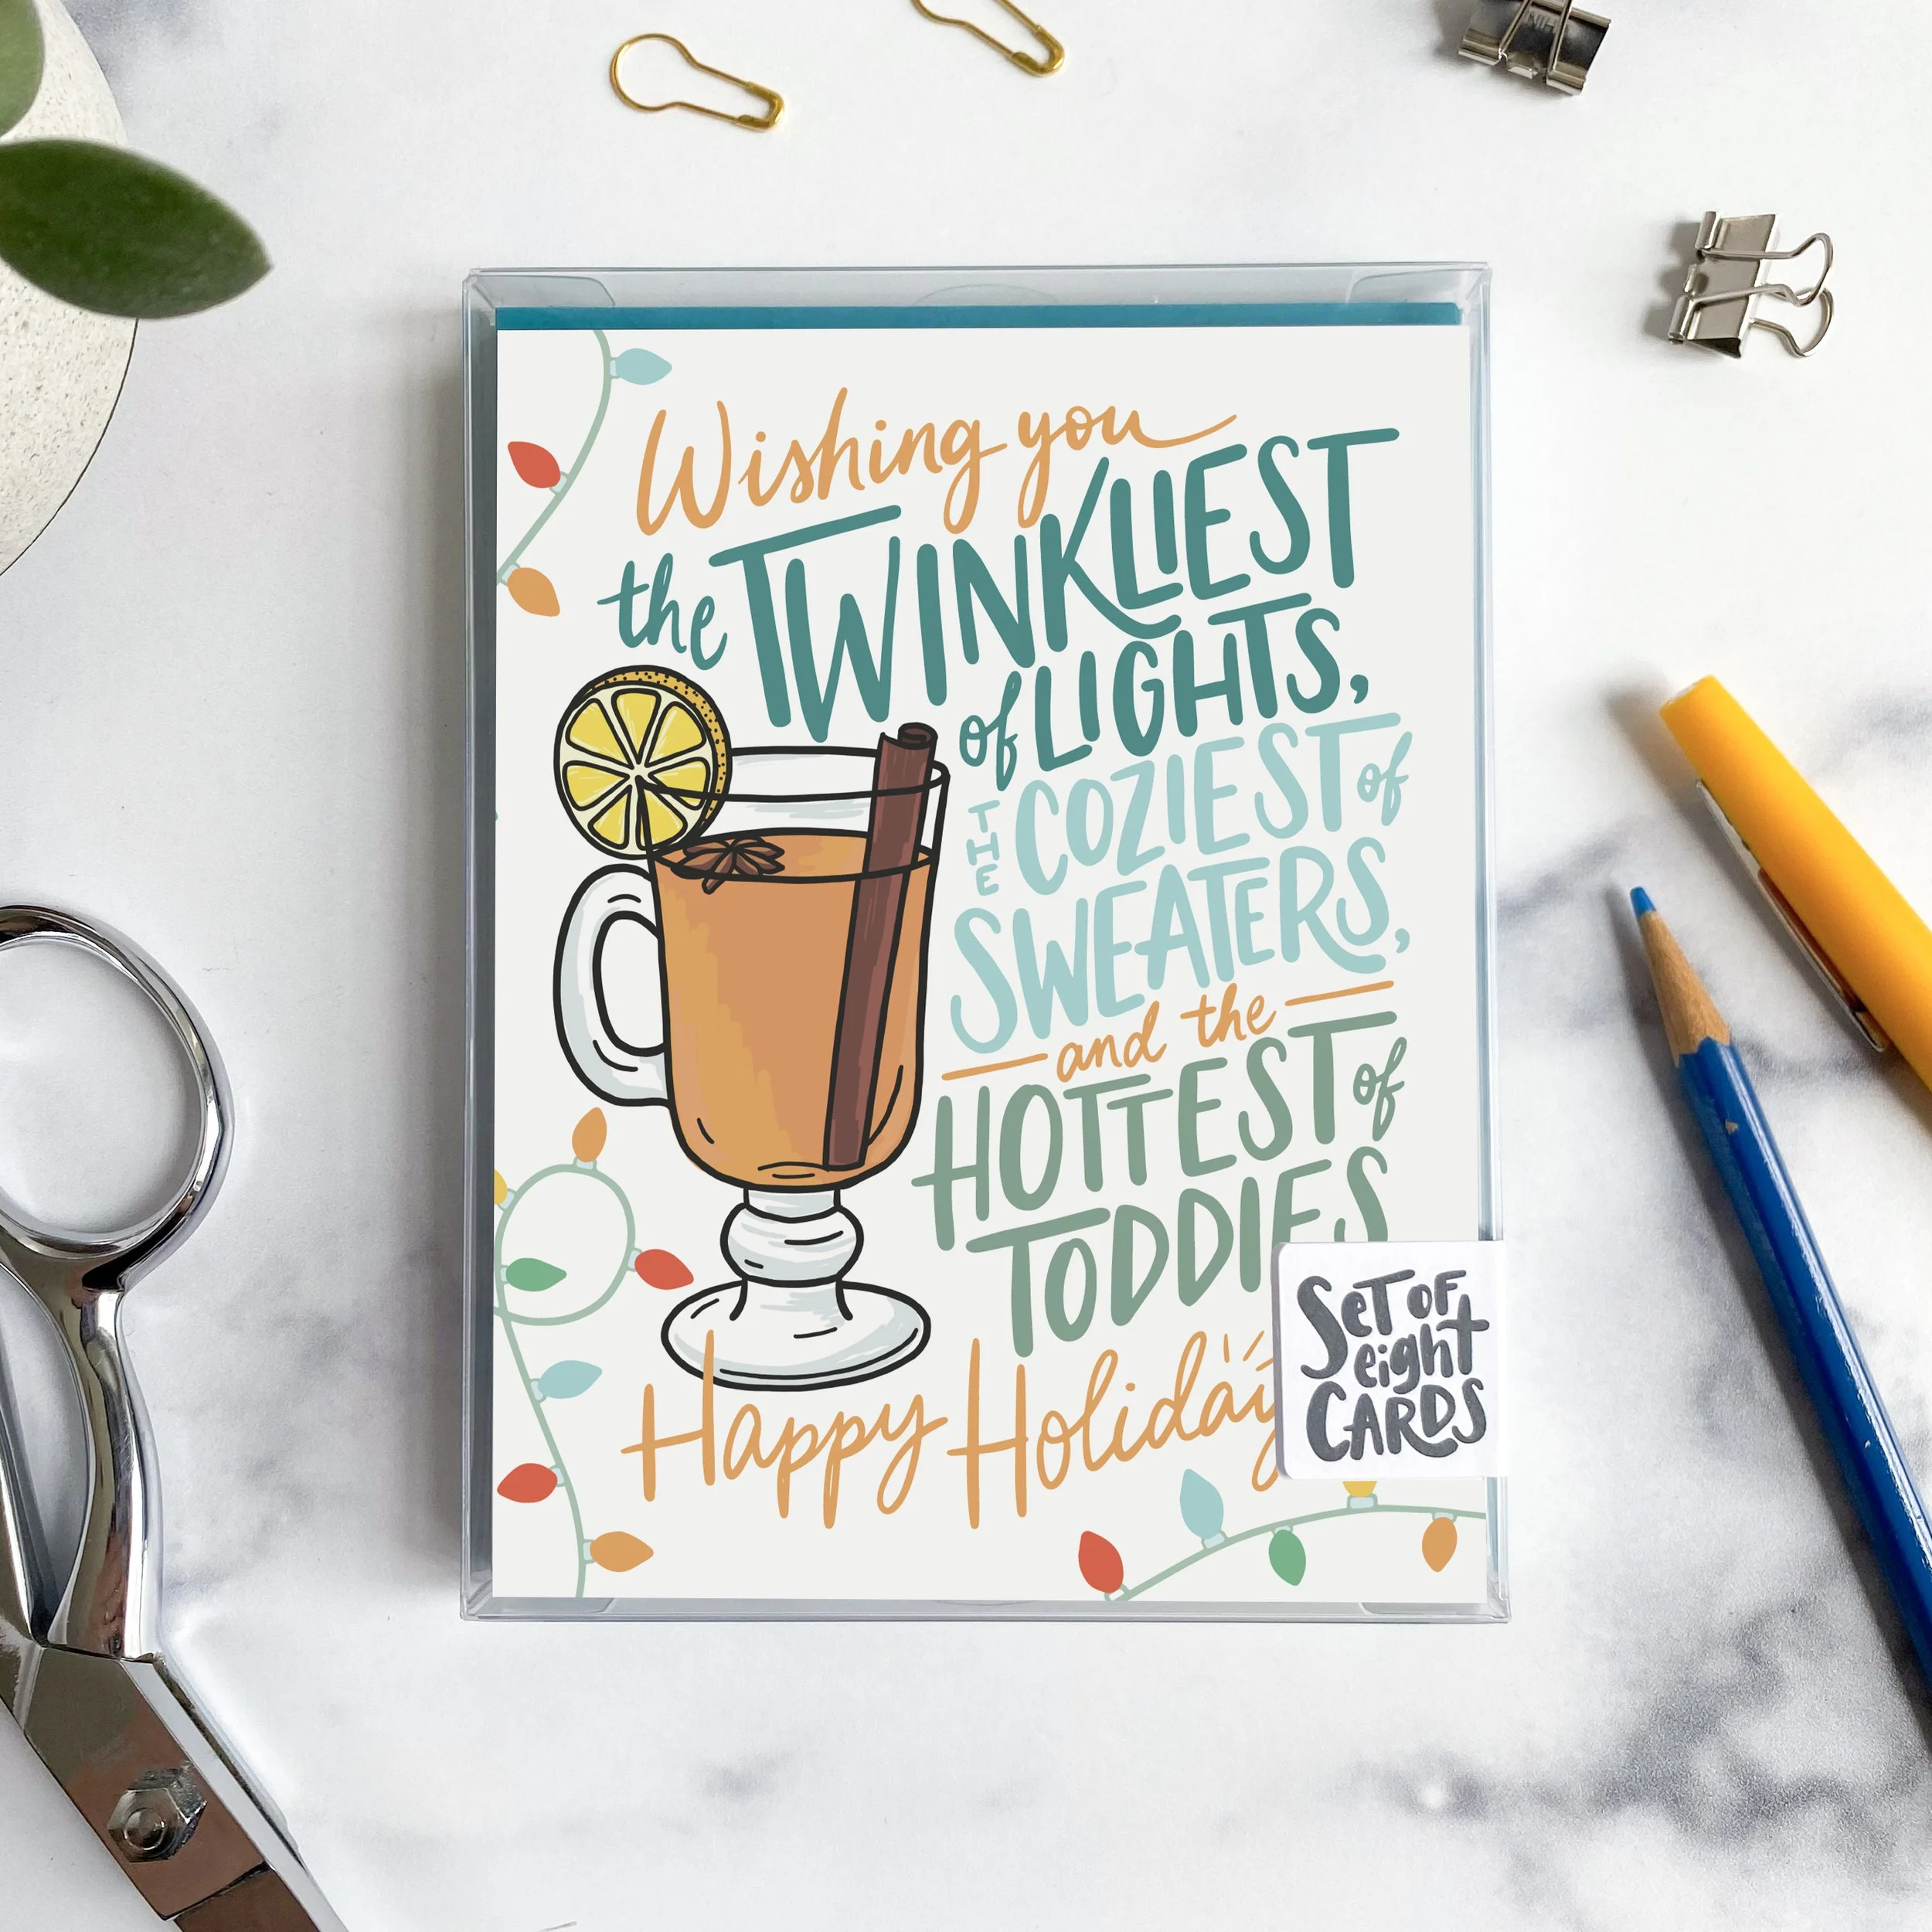 Wishing you
the TWINKLIEST
of LIGHTS,
THE COZIEST of
SWEATERS,
and the
HOTTEST of
TODDIES
Happy Holiday
SET OF
eight
CARDS